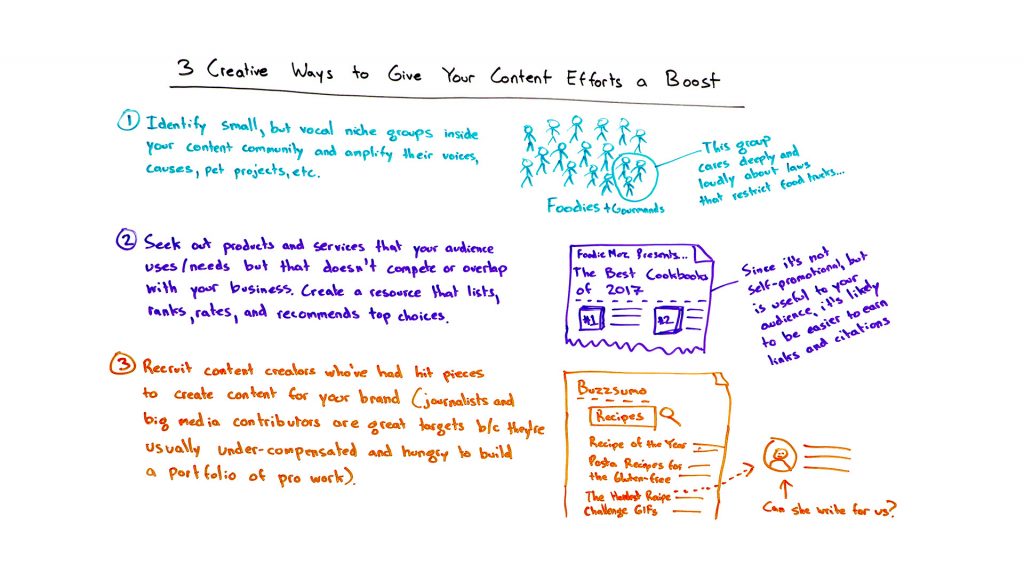 3 Creative Ways to Give Your Content Efforts a Boost
1 Identify small, but vocal niche groups inside
your content community and amplify their voices,
causes, pet projects, etc.
Foodies + Gourmands
This group
cares deeply and
loudly about laws
that restrict food trucks...
2 Seek out products and services that your audience
uses/needs but that doesn't compete or overlap
with your business. Create a resource that lists,
ranks, rates, and recommends top choices.
Foodie Moz Presents...
The Best Cookbooks
of 2017
#1
#2
Since it's not
self-promotional, but
is useful to your
audience, it's likely
to be easier to earn
links and citations
3 Recruit content creators who've had hit pieces
to create content for your brand (journalists and
big media contributors are great targets b/c they're
usually under-compensated and hungry to build
a portfolio of pro work).
Buzzsumo
Recipes
Recipe of the Year
Pasta Recipes for
the Gluten-free
The Hardest Recipe
Challenge GIFs
Can she write for us?